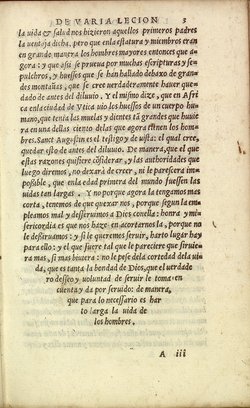 DE VARIA LECION 3
la vida & salud nos hizieron aquellos primeros padres
la ventaja dicha. pero que en la estatura y miembros eran
en grande manera los hombres mayores entonces que a-
gora: y que assi se prueua por muchas escripturas y se-
pulchros, y huessos que se han hallado debaxo de gran-
des montañas, que se cree verdaderamente hauer que-
dado de antes del diluuio. Y el mismo dize, que en Afri
ca en la ciudad de Vtica vio los huessos de vn cuerpo hu-
mano, que tenia las muelas y dientes tã grandes que huuie
ra en vna dellas ciento delas que agora tienen los hom-
bres. Sanct Augustin es el testigo y de vista: el qual cree,
quedar esto de antes del diluuio. De manera, que el que
estas razones quisiere cõsiderar, y las authoridades que
luego diremos, no dexará de creer, ni le parescera im-
possible, que en la edad primera del mundo fuessen las
vidas tan largas. Y no porque agora la tengamos mas
corta, tenemos de que quexar nos, porque segun la em-
pleamos mal y desseruimos a Dios conella: honra y mi-
sericordia es que nos haze en acortarnos la, porque no
le desiruamos: y si le queremos seruir, harto lugar hay
para ello: y el que fuere tal que le pareciere que siruiera
mas, si mas biuiera: no le pese dela cortedad dela vi-
da, que es tanta la bondad de Dios, que el verdade
ro desseo y voluntad de seruir le toma en
cuenta y da por seruido: de manera,
que para lo necessario es har
to larga la vida de
los hombres.
A iii